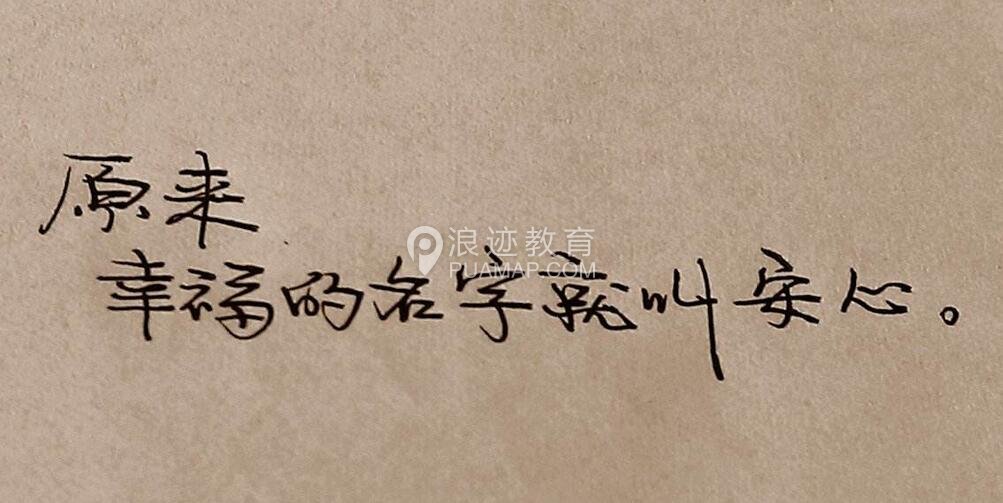 原来
幸福的名字就叫安心。
浪迹教育
PUAMAP.COM